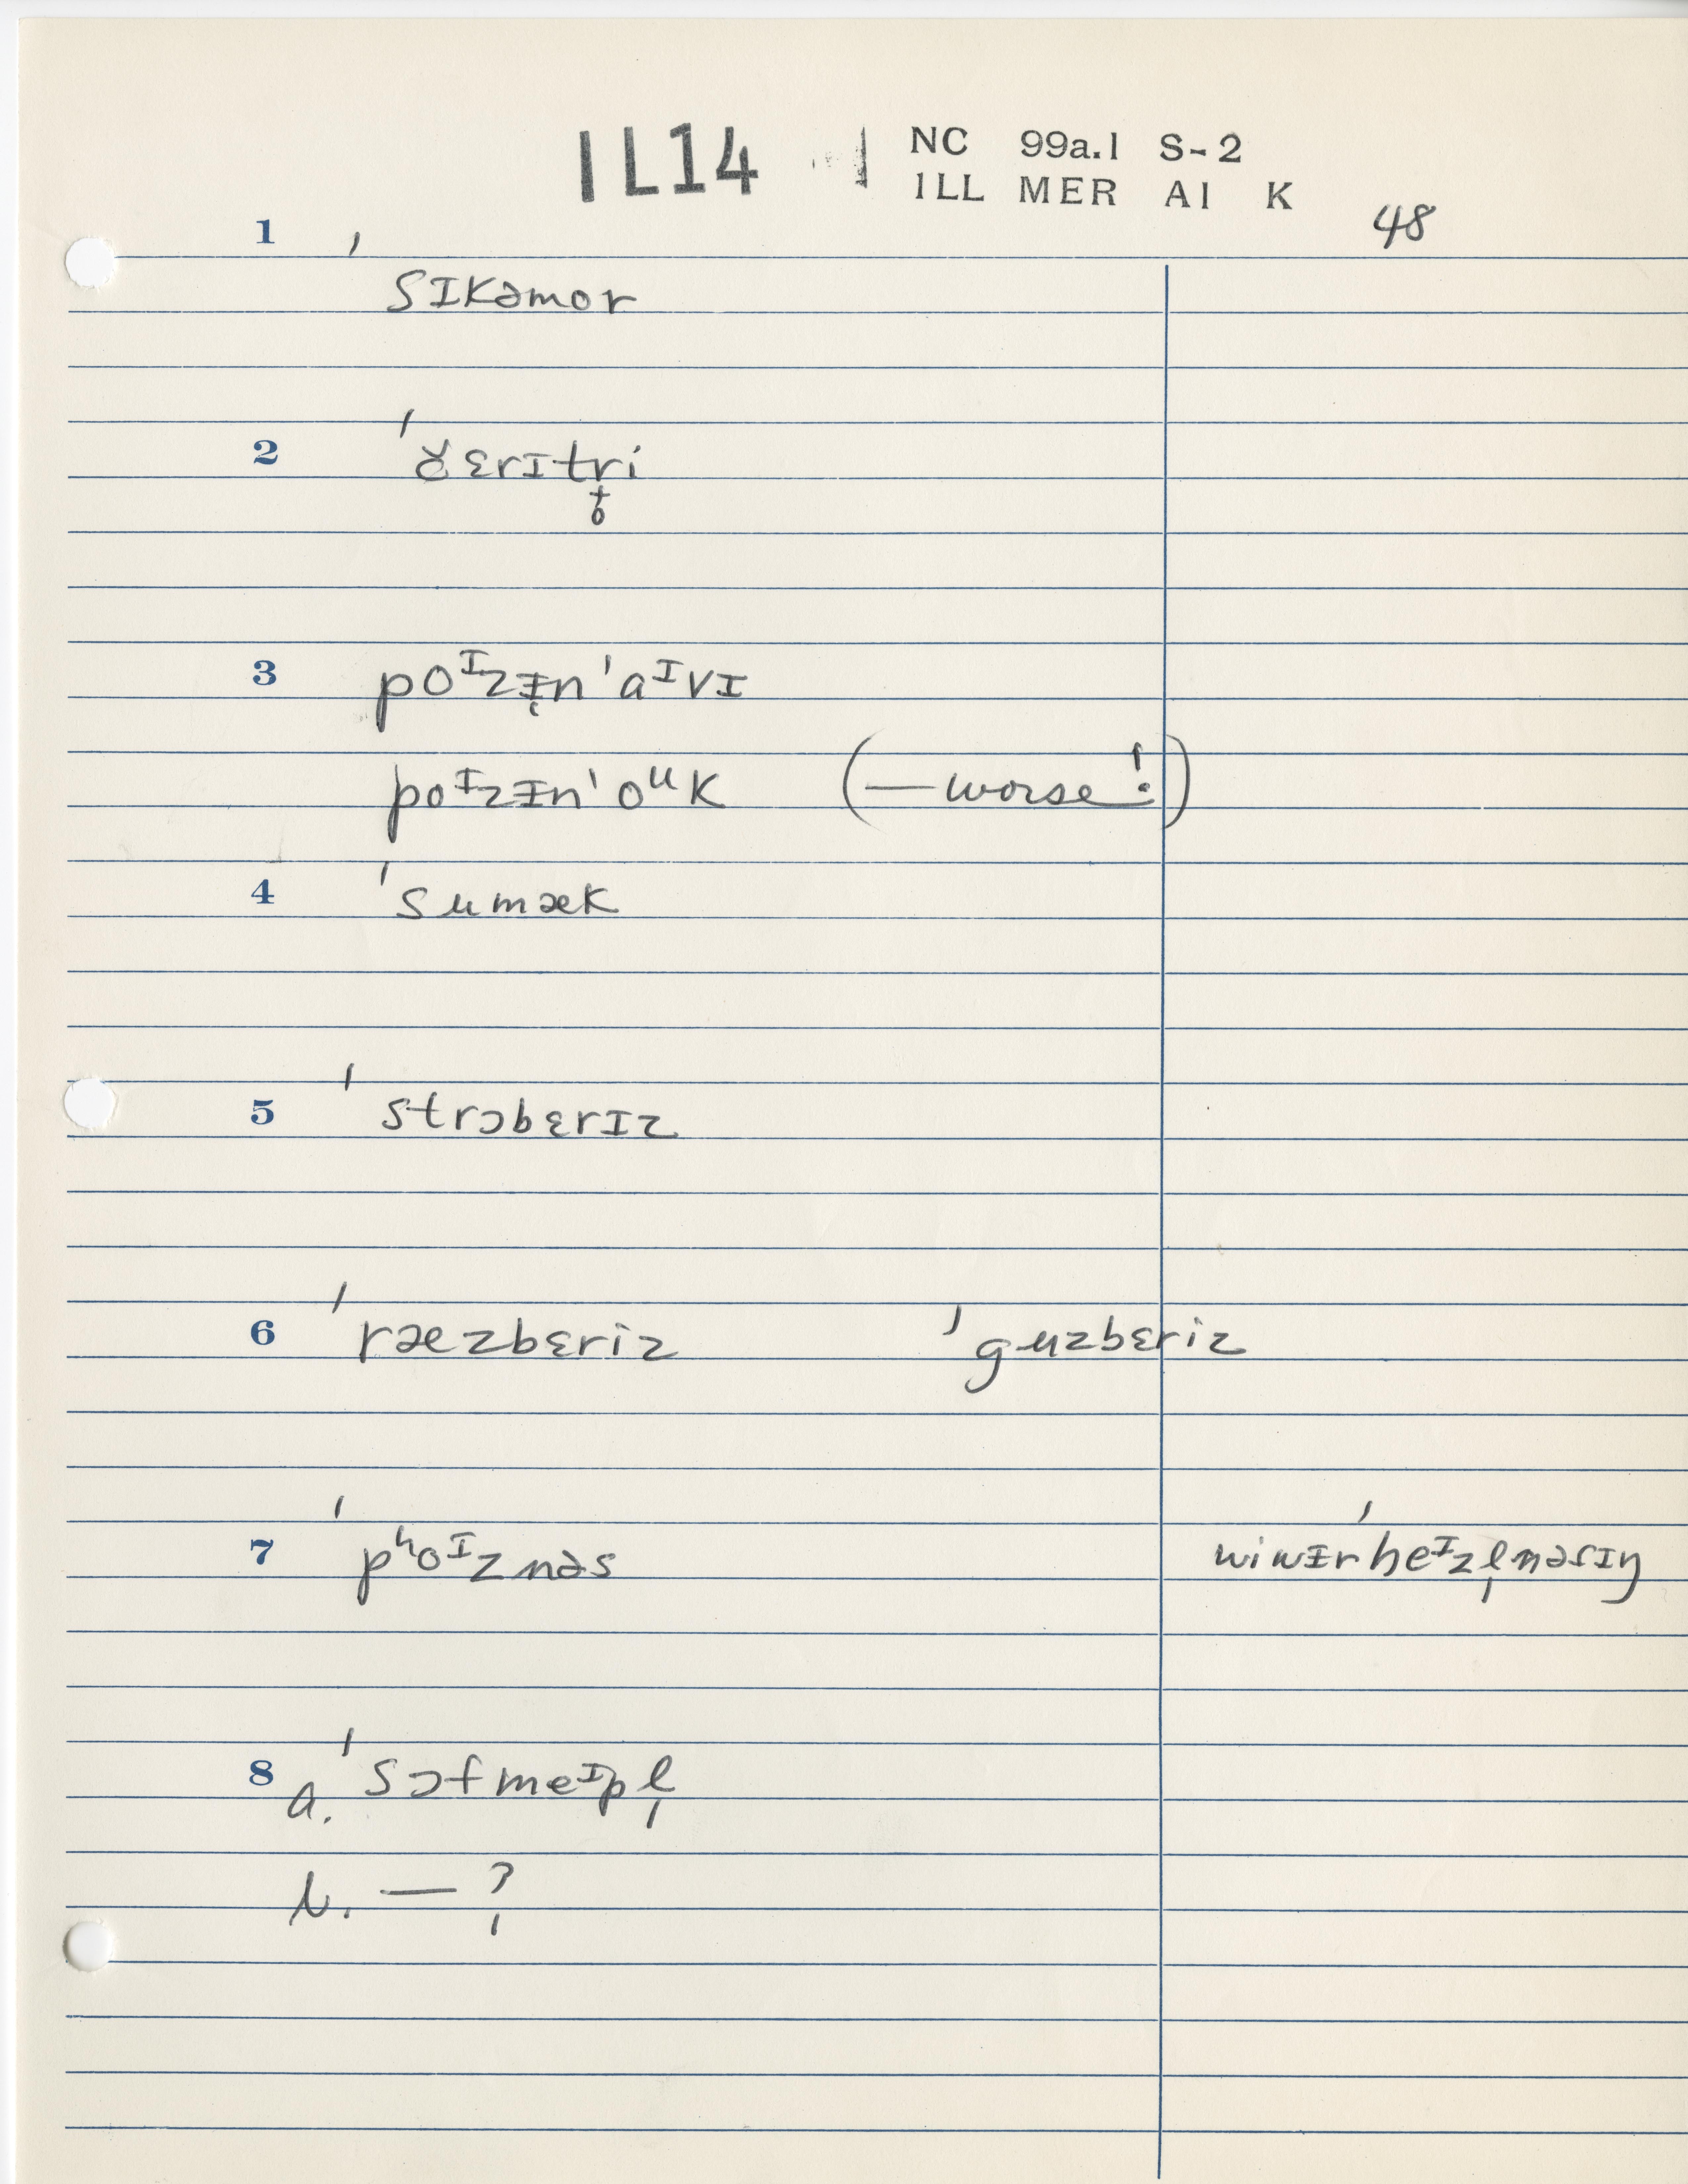 IL14 NC 99a.1 S-2
ILL MER A1 K 48
1 ˈsɪkəmor
2 ˈɤɛrɪtri
3 poᶦzᵻn ˈaᶦvɪ
poᶦzᵻn ˈoᵘk (—worse!)
4 ˈsumæk
5 ˈstrɔbɛrɪz
6 ˈræzbɛriz ˈguzbɛriz
7 ˈpʰoᶦznəs
8 a. ˈsɔfmeᶦpl̩
b. — ?